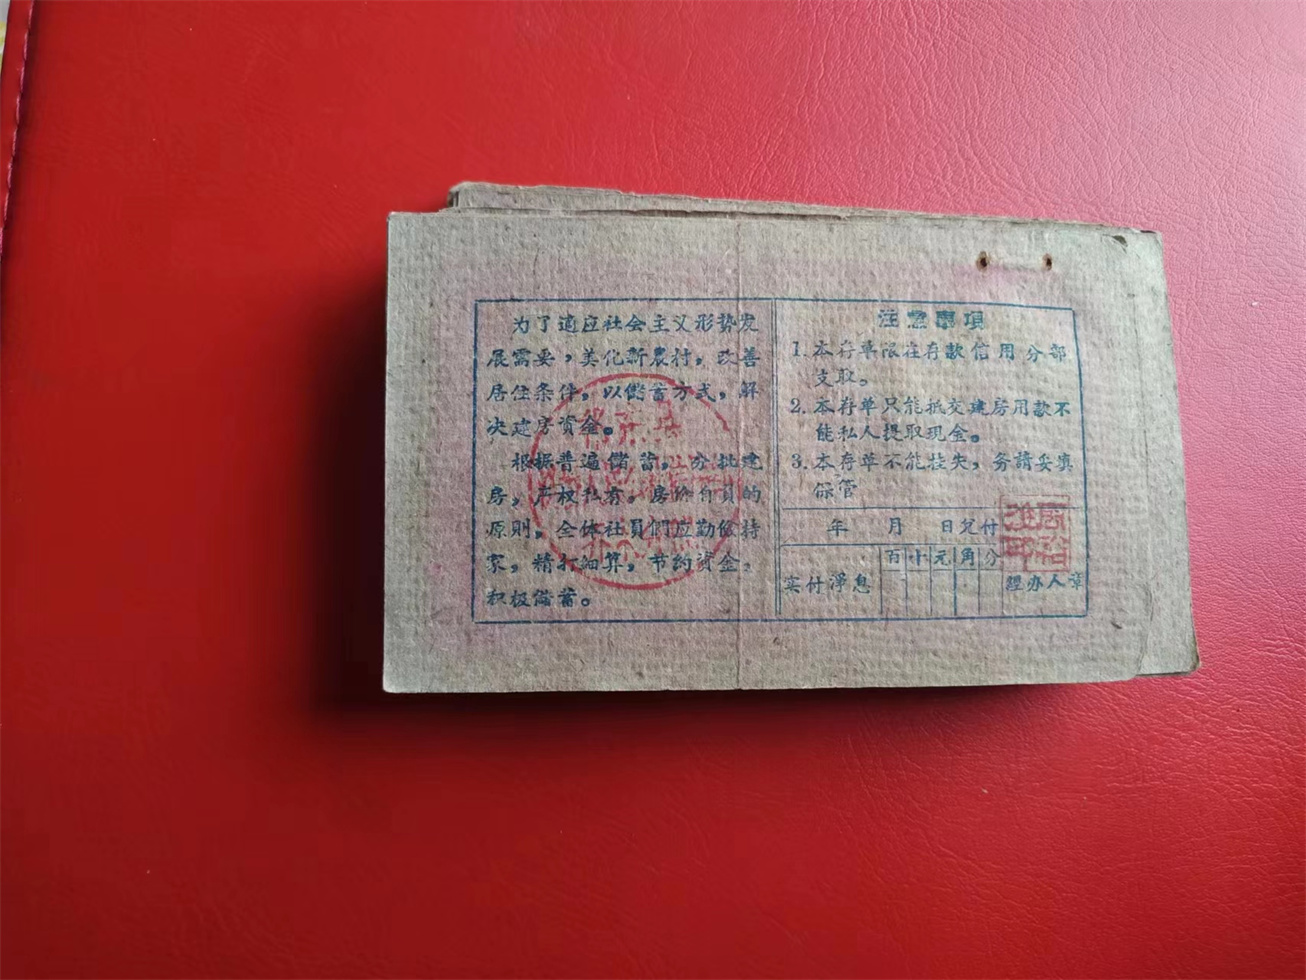 为了適应社会主义形势发
展需要，美化新農村，改善
居住条件，以儲蓄方式，解
决建房資金。
根据普遍儲蓄，分批建
房，产权私有。房价自負的
原則，全体社員們应勤儉持
家，精打細算，节約資金，
积极儲蓄。
注意事項
1.本存单限在存款信用分部
支取。
2.本存单只能抵交建房用款不
能私人提取現金。
3.本存单不能挂失，务請妥填
保管
年 月 日兌付
百十元角分
实付淨息
經办人章